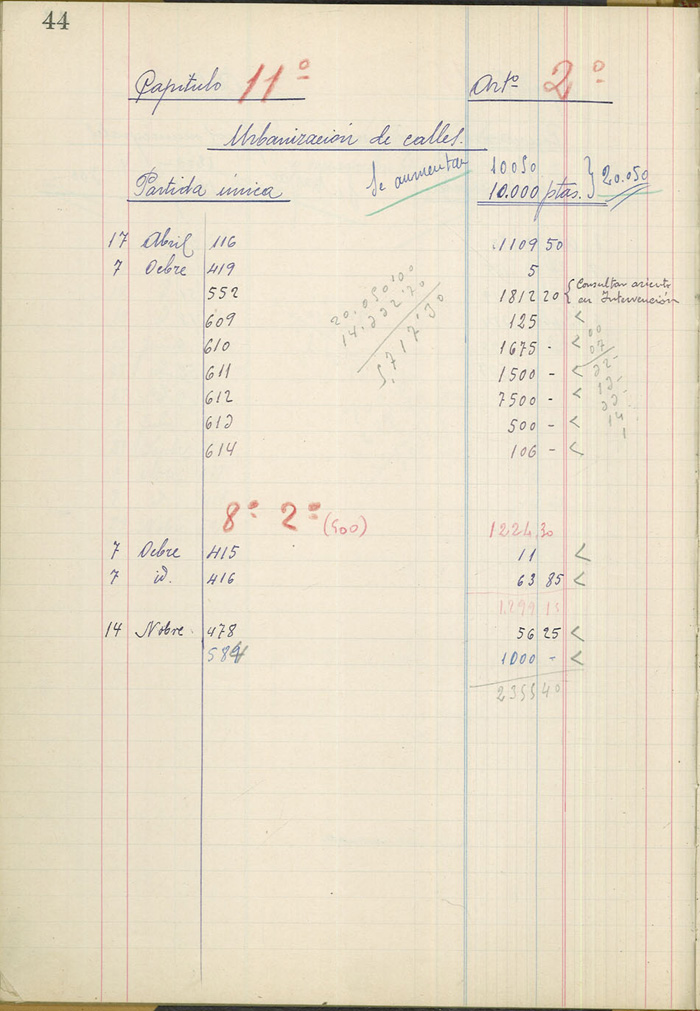 44
Capítulo 11º Artº 2º
Urbanización de calles.
Se aumentan 10050
Partida única 10.000 ptas. } 20.050
17 Abril 116 1109 50
7 Ocbre 419 5
552 1812 20 { Consultar asiento
en Intervención
20.050'00
14.332'70
5.717'30
609 125 <
610 1675 - <
611 1500 - <
612 7500 - <
613 500 - <
614 106 - <
8º 2º (500) 1224,30
7 Ocbre 415 11 <
7 id. 416 63 85 <
1299 15
14 Nobre. 478 56 25 <
584 1000 - <
2355 40